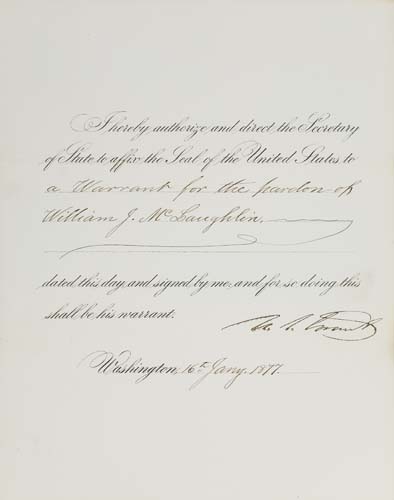 I hereby authorize and direct the Secretary
of State to affix the Seal of the United States to
a Warrant for the pardon of
William J. McLaughlin.
dated this day, and signed by me; and for so doing this
shall be his warrant.
U. S. Grant
Washington, 16th Jany. 1877.